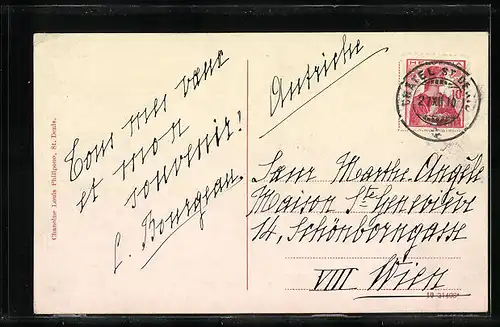 Tous mes vœux
et mon
souvenir!
L. Bourgeau
Chanoine Louis Philipone, St. Denis.
Autriche
HELVETIA
10
CHATEL ST. DENIS
27.XII.10
Sœur Marthe-Angèle
Maison Ste Geneviève
14, Schönborngasse
VIII Wien